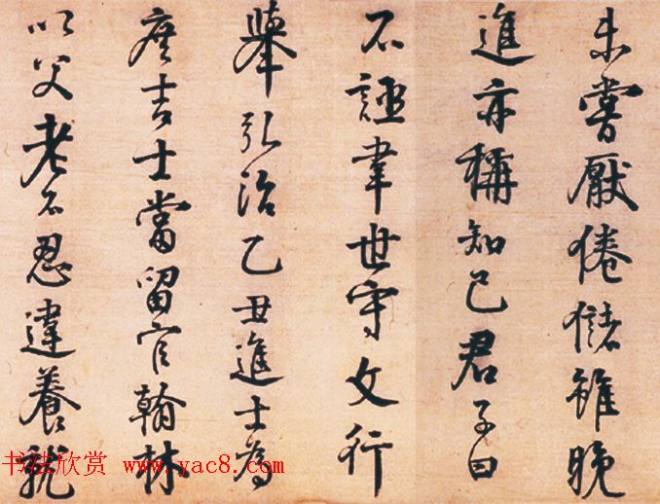 未嘗厭倦儲雖晚
進亦稱知己君子曰
不誣韋世守文行
舉弘治乙丑進士為
庶吉士當留官翰林
以父老不忍違養就
书法欣赏 www.yac8.com